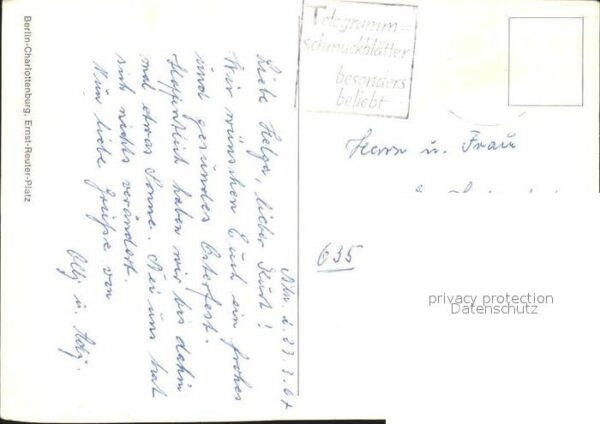 Berlin-Charlottenburg, Ernst-Reuter-Platz
Bln. d. 23.3.67
Liebe Helga, lieber Kurt!
Wir wünschen Euch ein frohes
und gesundes Osterfest.
Hoffentlich haben wir bis dahin
mal etwas Sonne. Bei uns hat
sich nichts verändert.
Nun liebe Grüße von
u.
Telegramm=
schmuckblätter
besonders
beliebt
Herrn u. Frau
635
privacy protection
Datenschutz